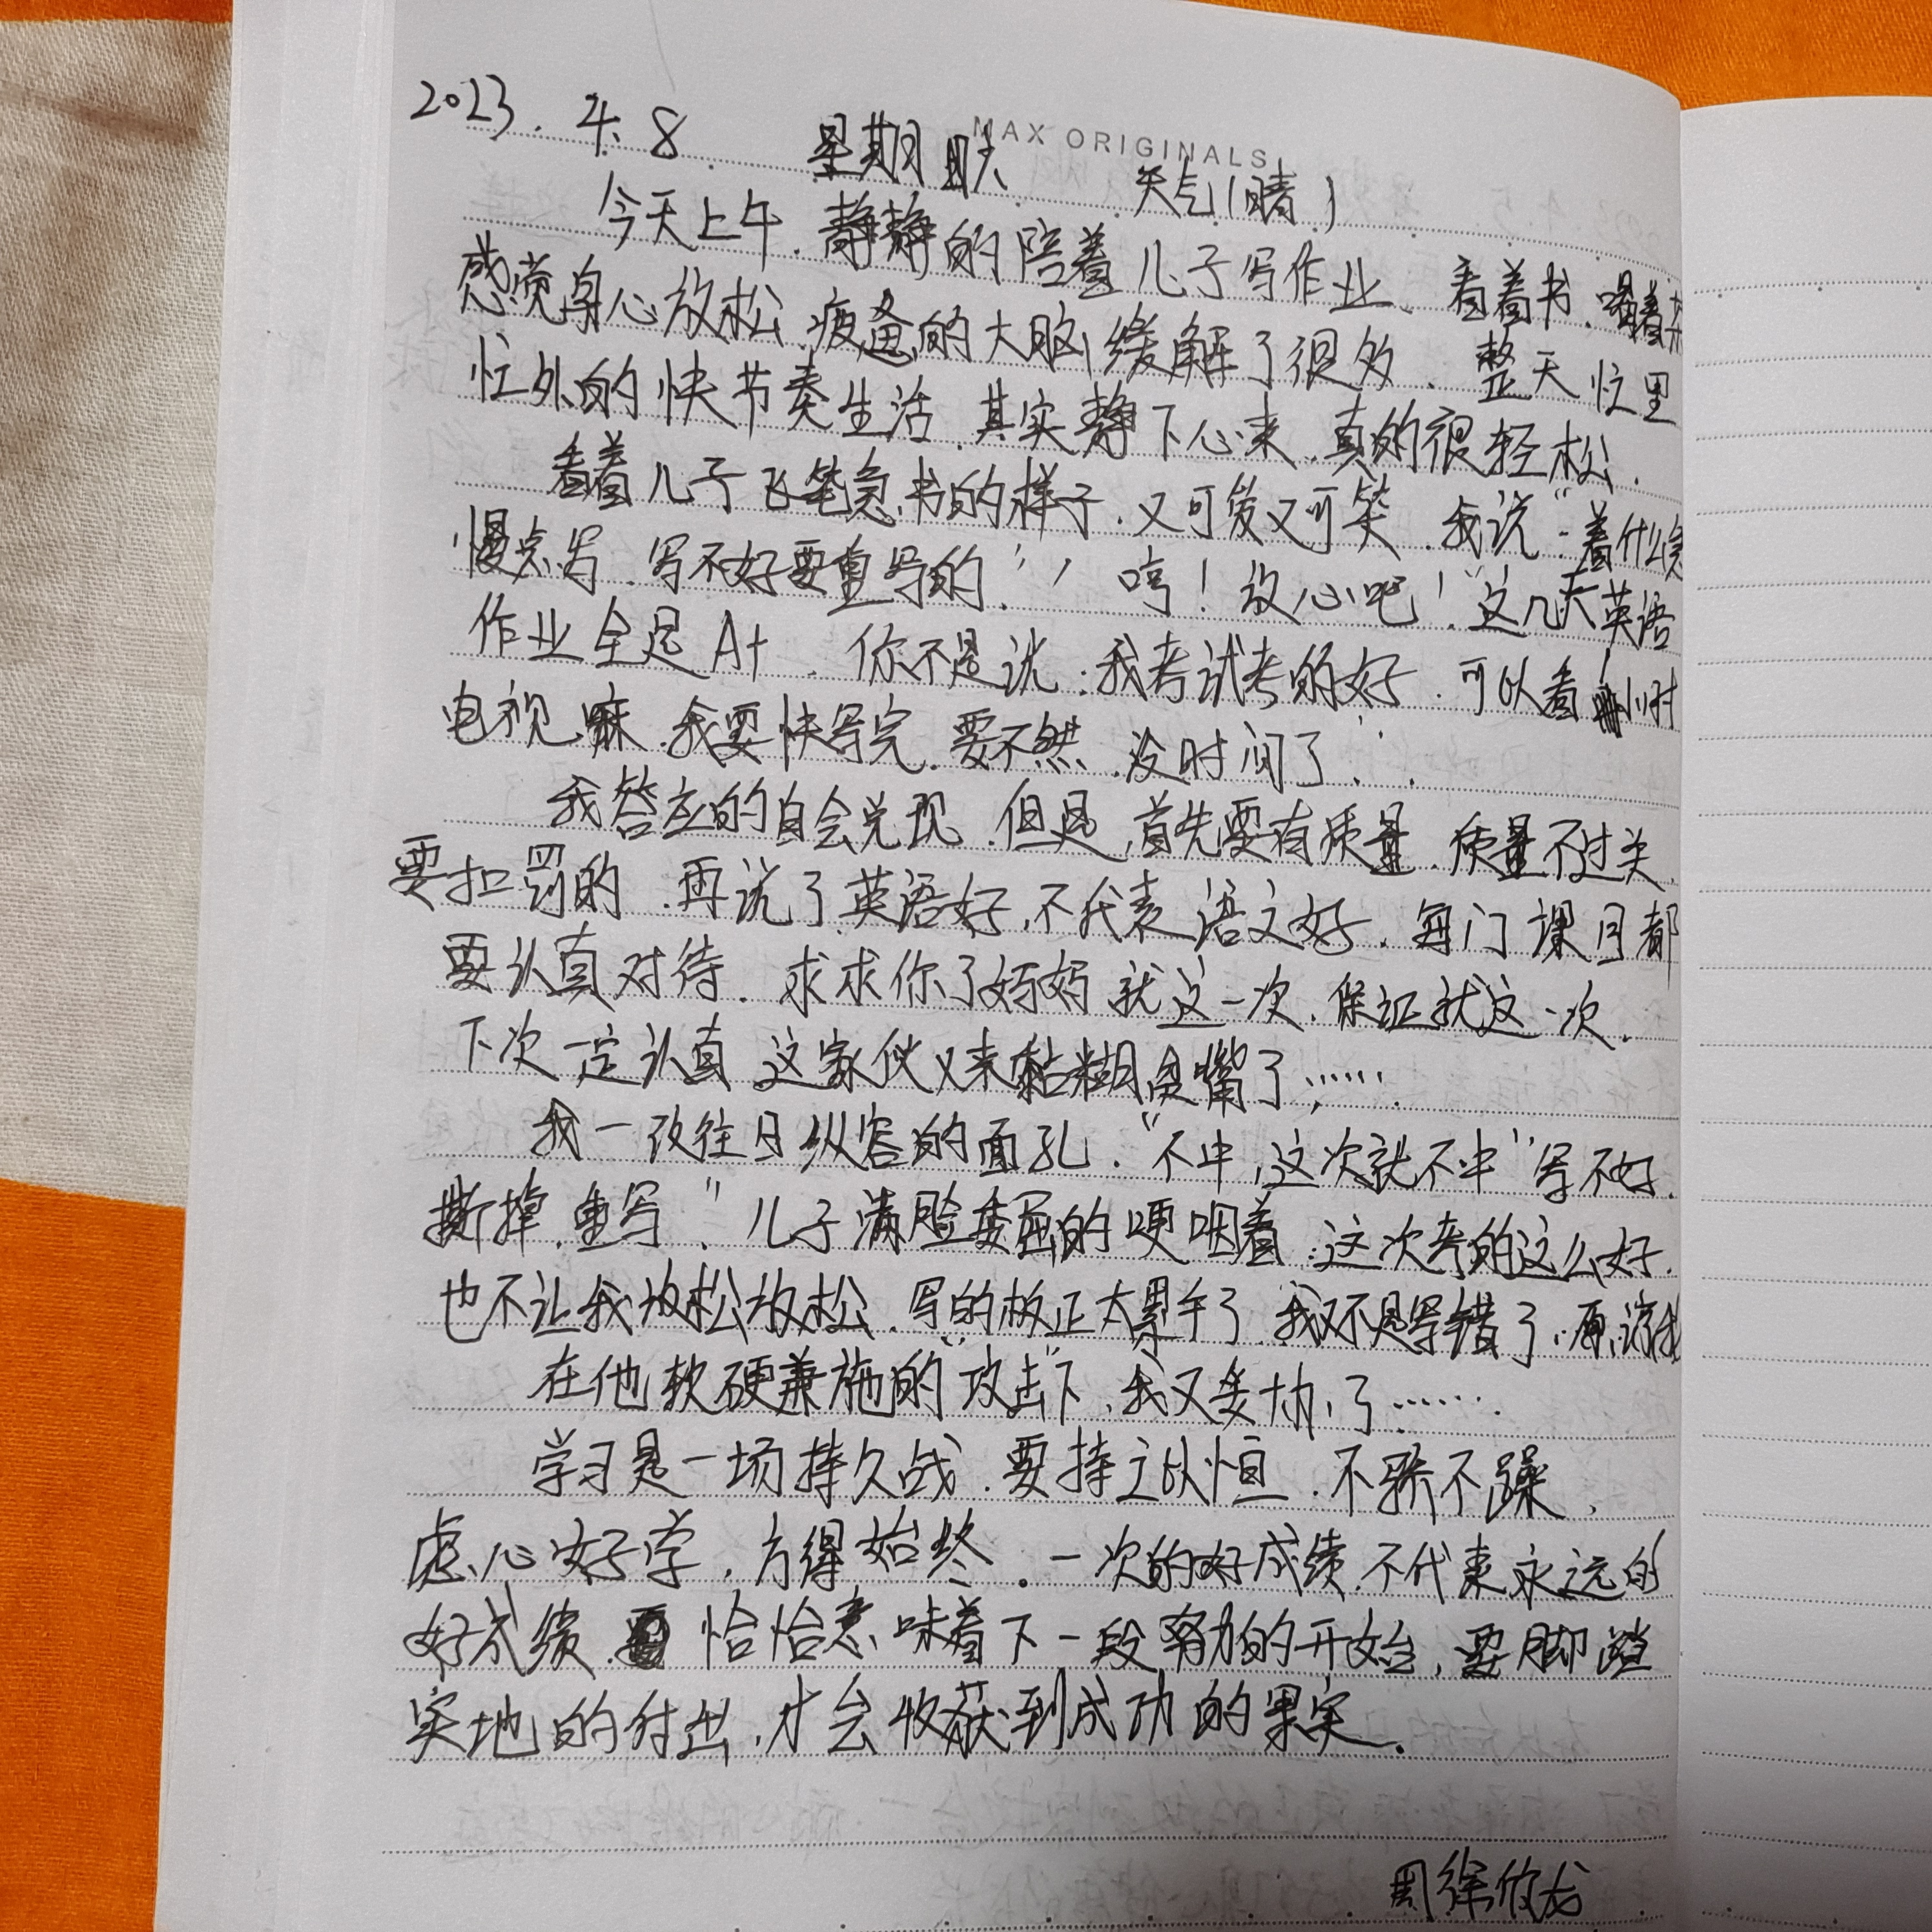 MAX ORIGINALS
2023. 4. 8 星期 天气(晴)
今天上午.静静的陪着儿子写作业、看着书、喝着
感觉身心放松.疲惫的大脑缓解了很多.整天忙里
忙外的快节奏生活.其实静下心来.真的很轻松.
看着儿子飞笔急书的样子.又可爱又可笑.我说:“着什么急
慢点写.写不好要重写的.” 哼!放心吧!”这几天英语
作业全是A+.你不是说:我考试考的好.可以看 小时
电视嘛.我要快写完.要不然.没时间了.
我答应的自会兑现.但是,首先要有质量.质量不过关.
要扣罚的.再说了英语好,不代表语文好.每门课目都
要认真对待.求求你了妈妈就这一次.保证就这一次.
下次一定认真 这家伙又来黏糊 嘴了……
我一改往日纵容的面孔.“不中,这次就不中”写不好.
撕掉.重写.”儿子满脸委屈的哽咽着:这次考的这么好.
也不让我放松放松.写的板正太累手了.我又不是写错了.原谅我
在他软硬兼施的“攻击”下,我又妥协了……
学习是一场持久战.要持之以恒.不骄不躁,
虚心好学,方得始终.一次的好成绩.不代表永远的
好成绩. 恰恰意味着下一段努力的开始,要脚踏
实地的付出,才会收获到成功的果实.
周徐